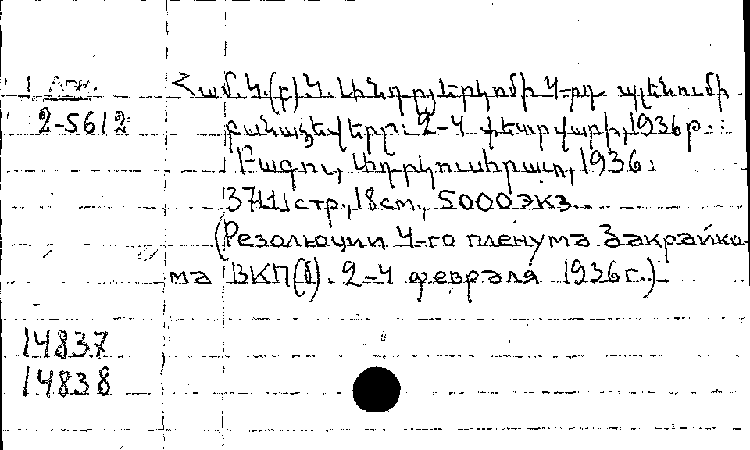 1 арм.
2-5612
Համ.Կ.(բ)Կ. Անդրյերկոմի 4-րդ պլենումի
բանաձեվերը: 2-4 փետրվարի, 1936 թ.:
Բագու, Ադրկուսհրատ, 1936:
37[1] стр., 18 см., 5000 экз.
(Резолюции 4-го пленума Закрайко-
ма ВКП(б). 2-4 февраля 1936 г.)
14837
14838